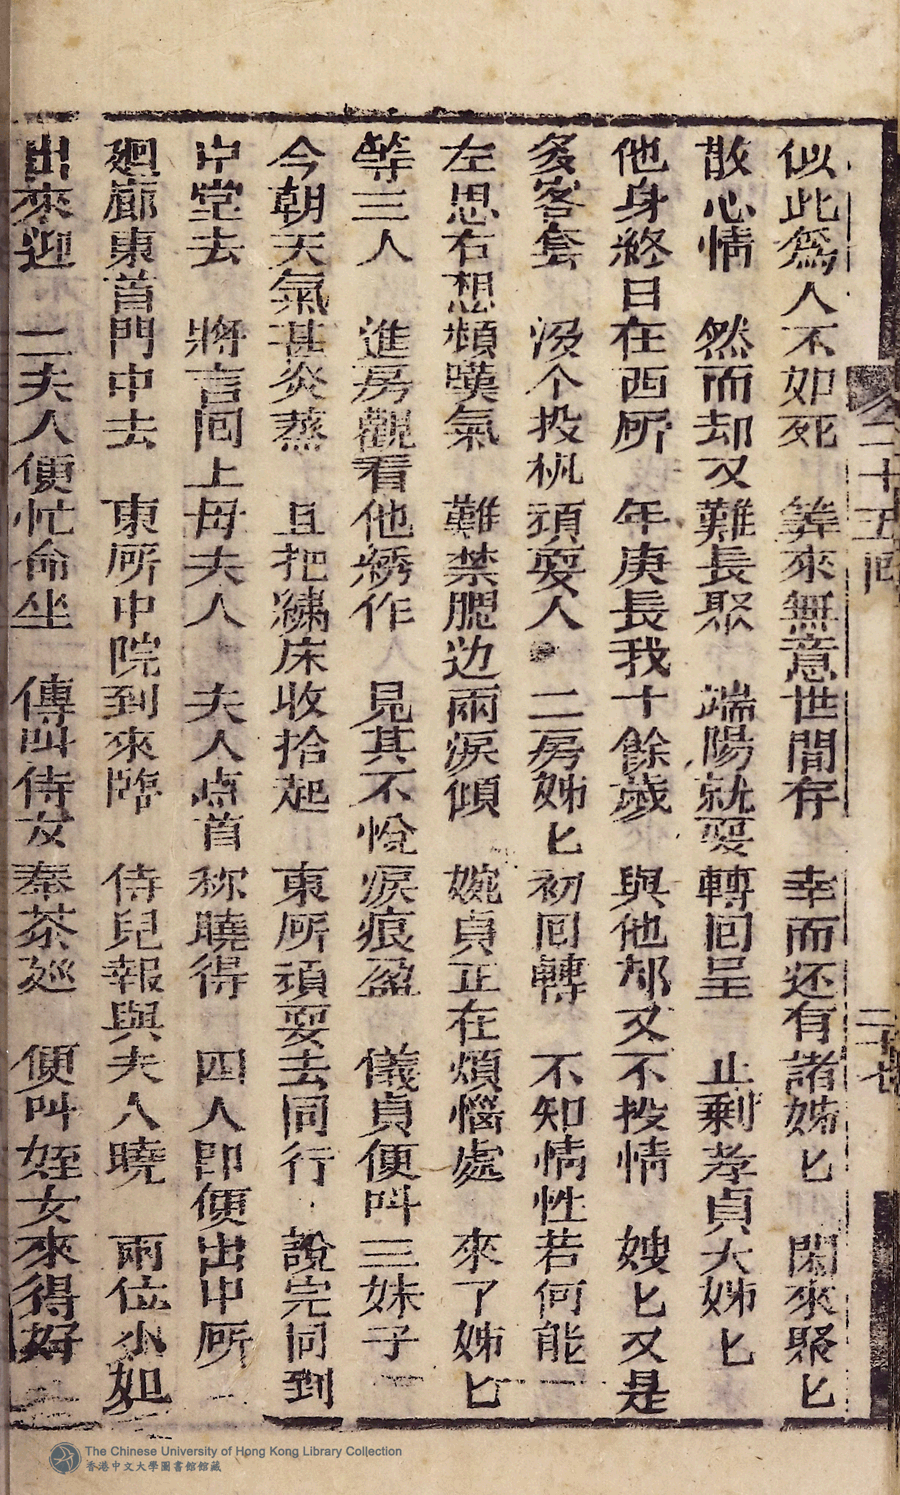 二十五回 二十七
似此爲人不如死 算來無意世間存 幸而还有諸姊匕 閑來聚匕
散心情 然而却又難長聚 端陽就要轉回呈 止剩孝貞大姊匕
他身終日在西所 年庚長我十餘歲 與他却又不投情 嫂匕又是
多客套 没个投机頑耍人 二房姊匕初回轉 不知情性若何能
左思右想頻嘆氣 難禁腮边兩淚傾 婉貞正在煩惱處 來了姊匕
等三人 進房觀看他綉作 見其不悅淚痕盈 儀貞便叫三妹子
今朝天氣甚炎蒸 且把繡床收拾起 東所頑耍去同行 說完同到
中堂去 將言回上母夫人 夫人点首称曉得 四人即便出中所
廻廊東首門中去 東所中院到來臨 侍兒報與夫人曉 兩位小如
出來迎 二夫人便忙命坐 傳叫侍女奉茶廵 便叫姪女來得好
The Chinese University of Hong Kong Library Collection
香港中文大學圖書館館藏